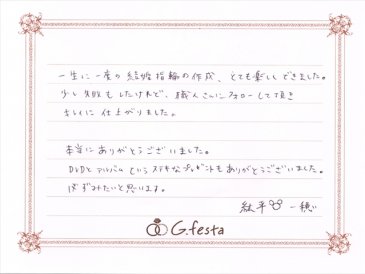 一生に一度の結婚指輪の作成、とても楽しくできました。
少し失敗もしたけれど、職人さんにフォローして頂き
キレイに仕上がりました。
本当にありがとうございました。
DVDとアルバムというステキなプレゼントもありがとうございました。
必ずみたいと思います。
紘平 一穂
G.festa